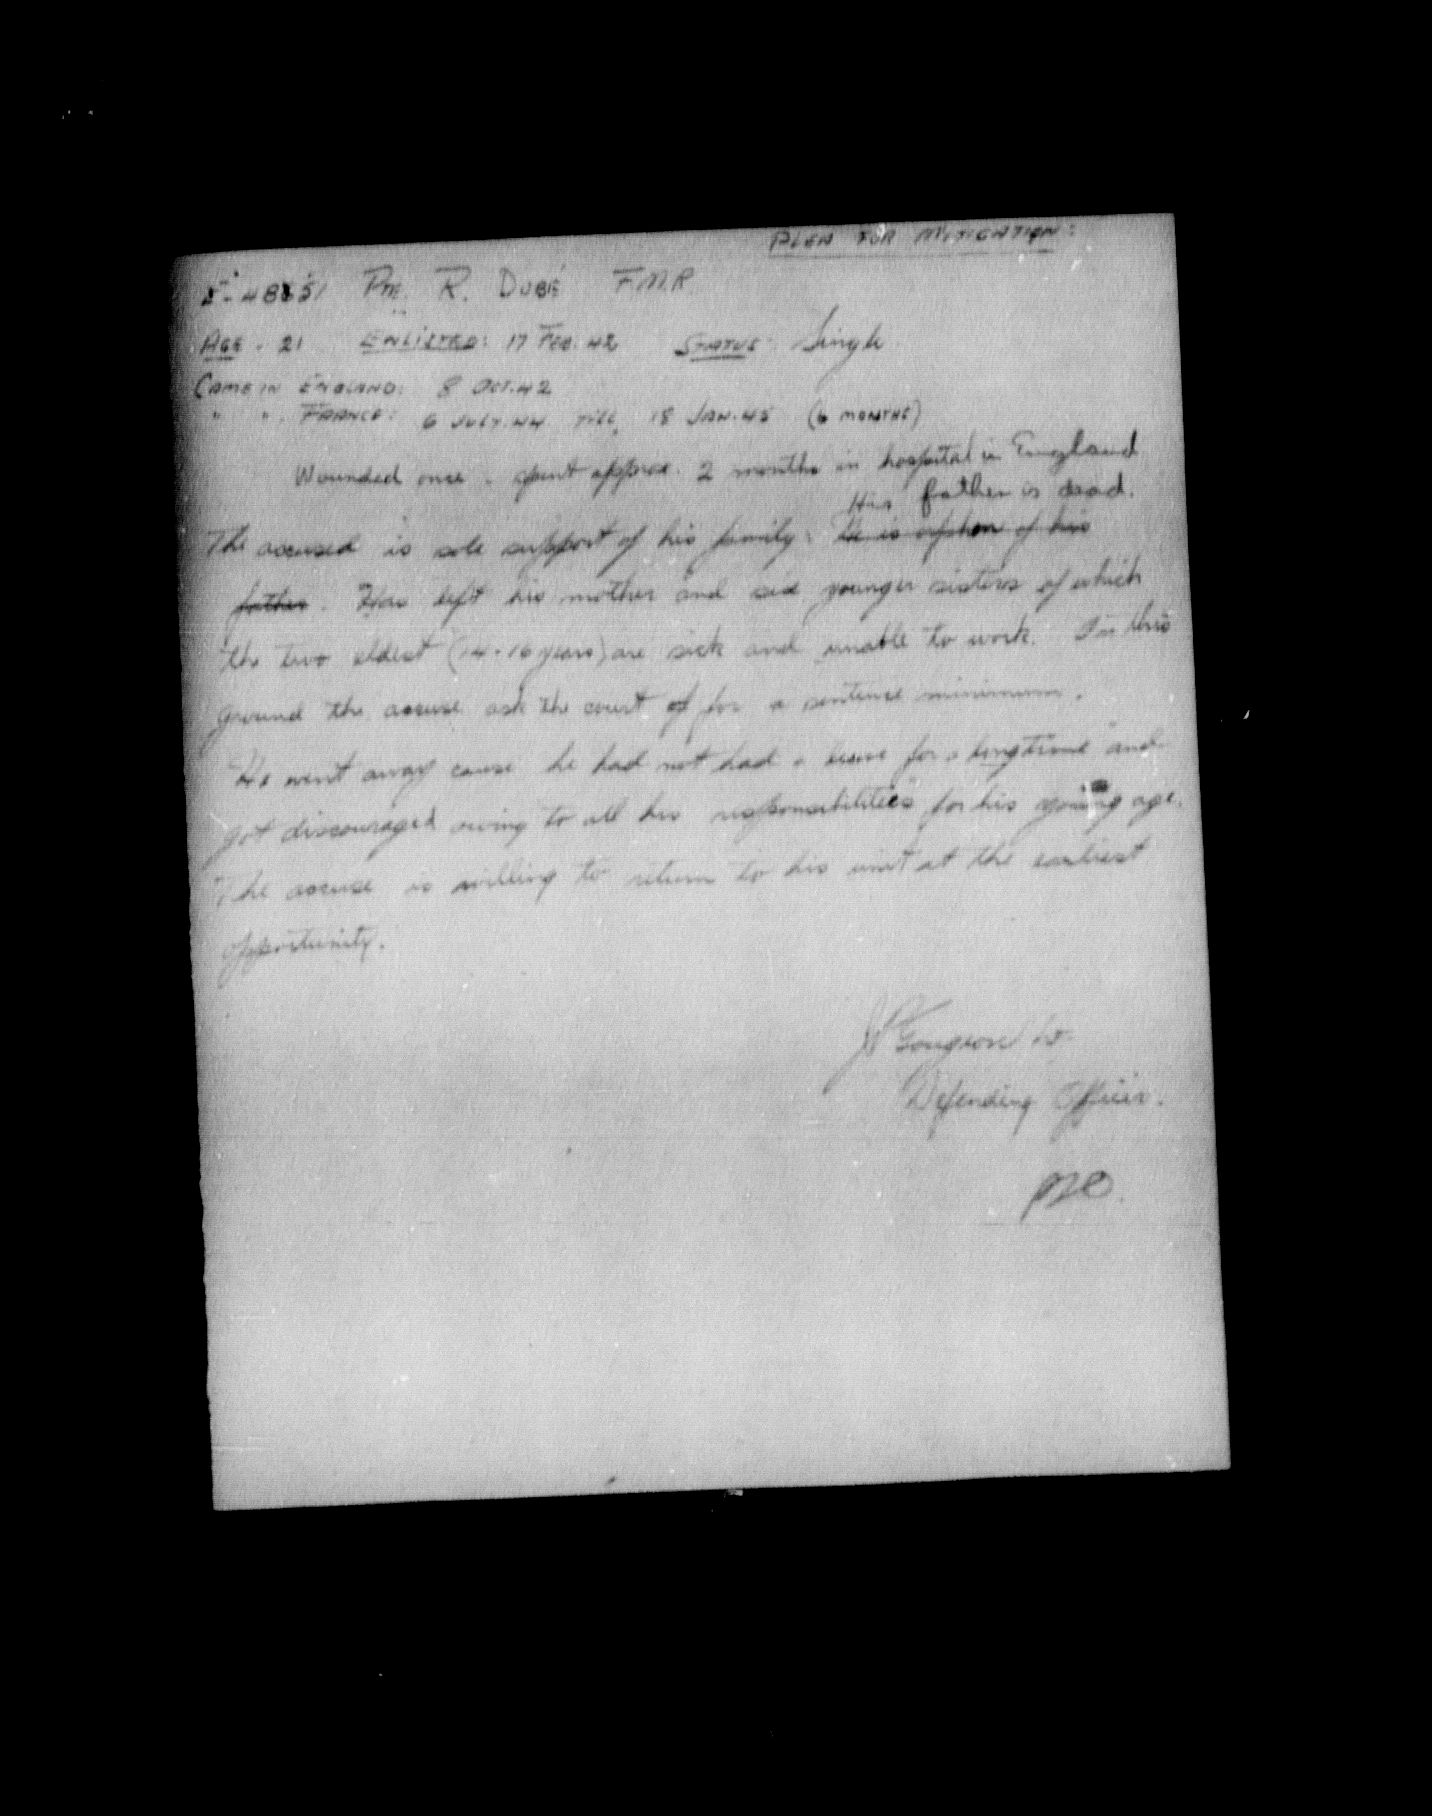 PLEA FOR MITIGATION:
Pte. R. DUBÉ F.M.R.
AGE - 21 ENLISTED: 17 FEB. 42 STATUS: Single
CAME IN ENGLAND: 8 OCT. 42
" " FRANCE: 6 JULY. 44 TILL 18 JAN. 45 (6 MONTHS)
Wounded once - spent approx. 2 months in hospital in England
His father is dead.
The accused is sole support of his family. He is orphan of his
father. Has left his mother and six younger sisters of which
the two eldest (14-16 years) are sick and unable to work. On this
ground the accuse ask the court of for a sentence minimum.
He went away cause he had not had a leave for a longtime and
got discouraged owing to all his responsibilities for his young age.
The accuse is willing to return to his unit at the earliest
opportunity.
Defending Officer.